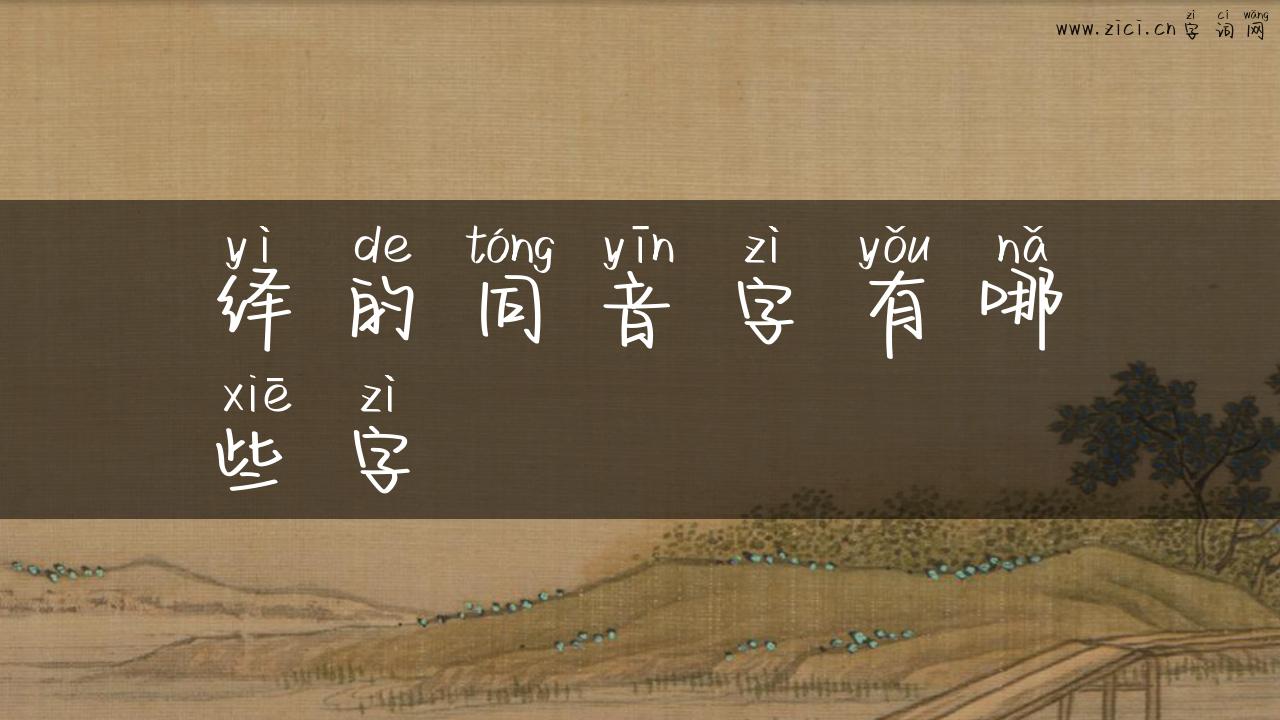 zì cí wǎng
www.zici.cn 字词网
yì de tóng yīn zì yǒu nǎ
绎的同音字有哪
xiē zì
些字